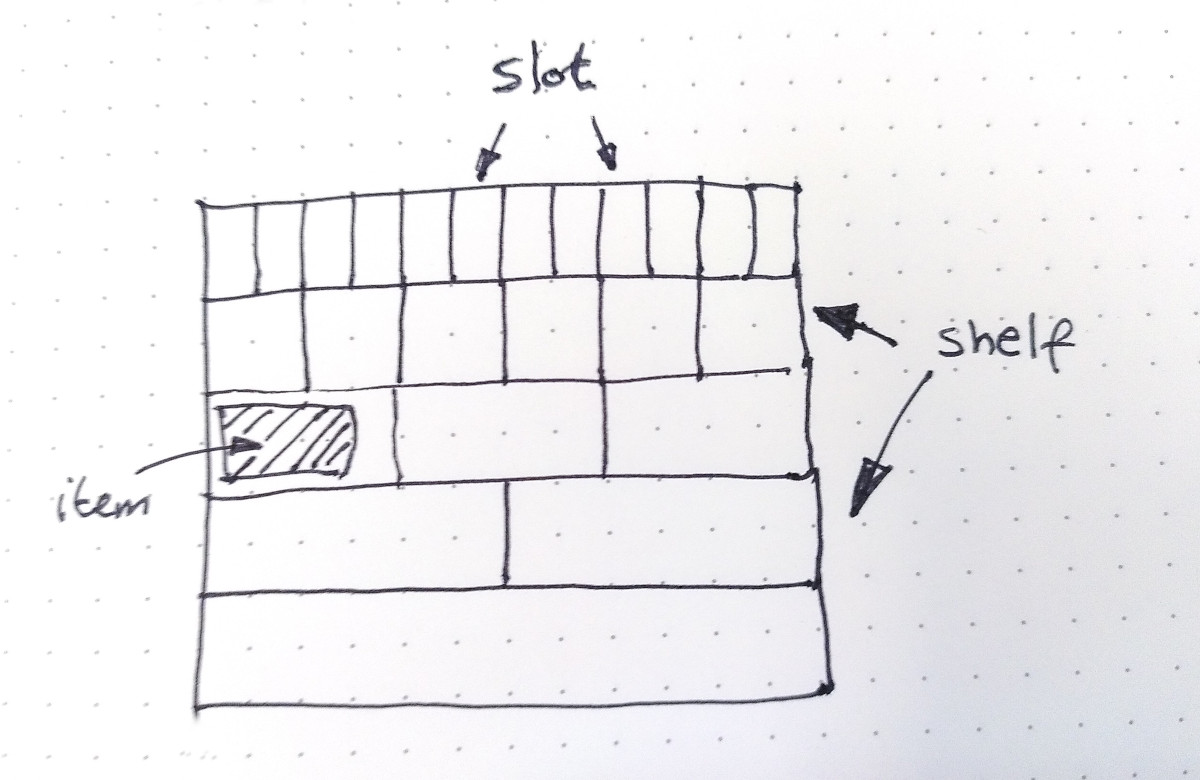 slot
shelf
item